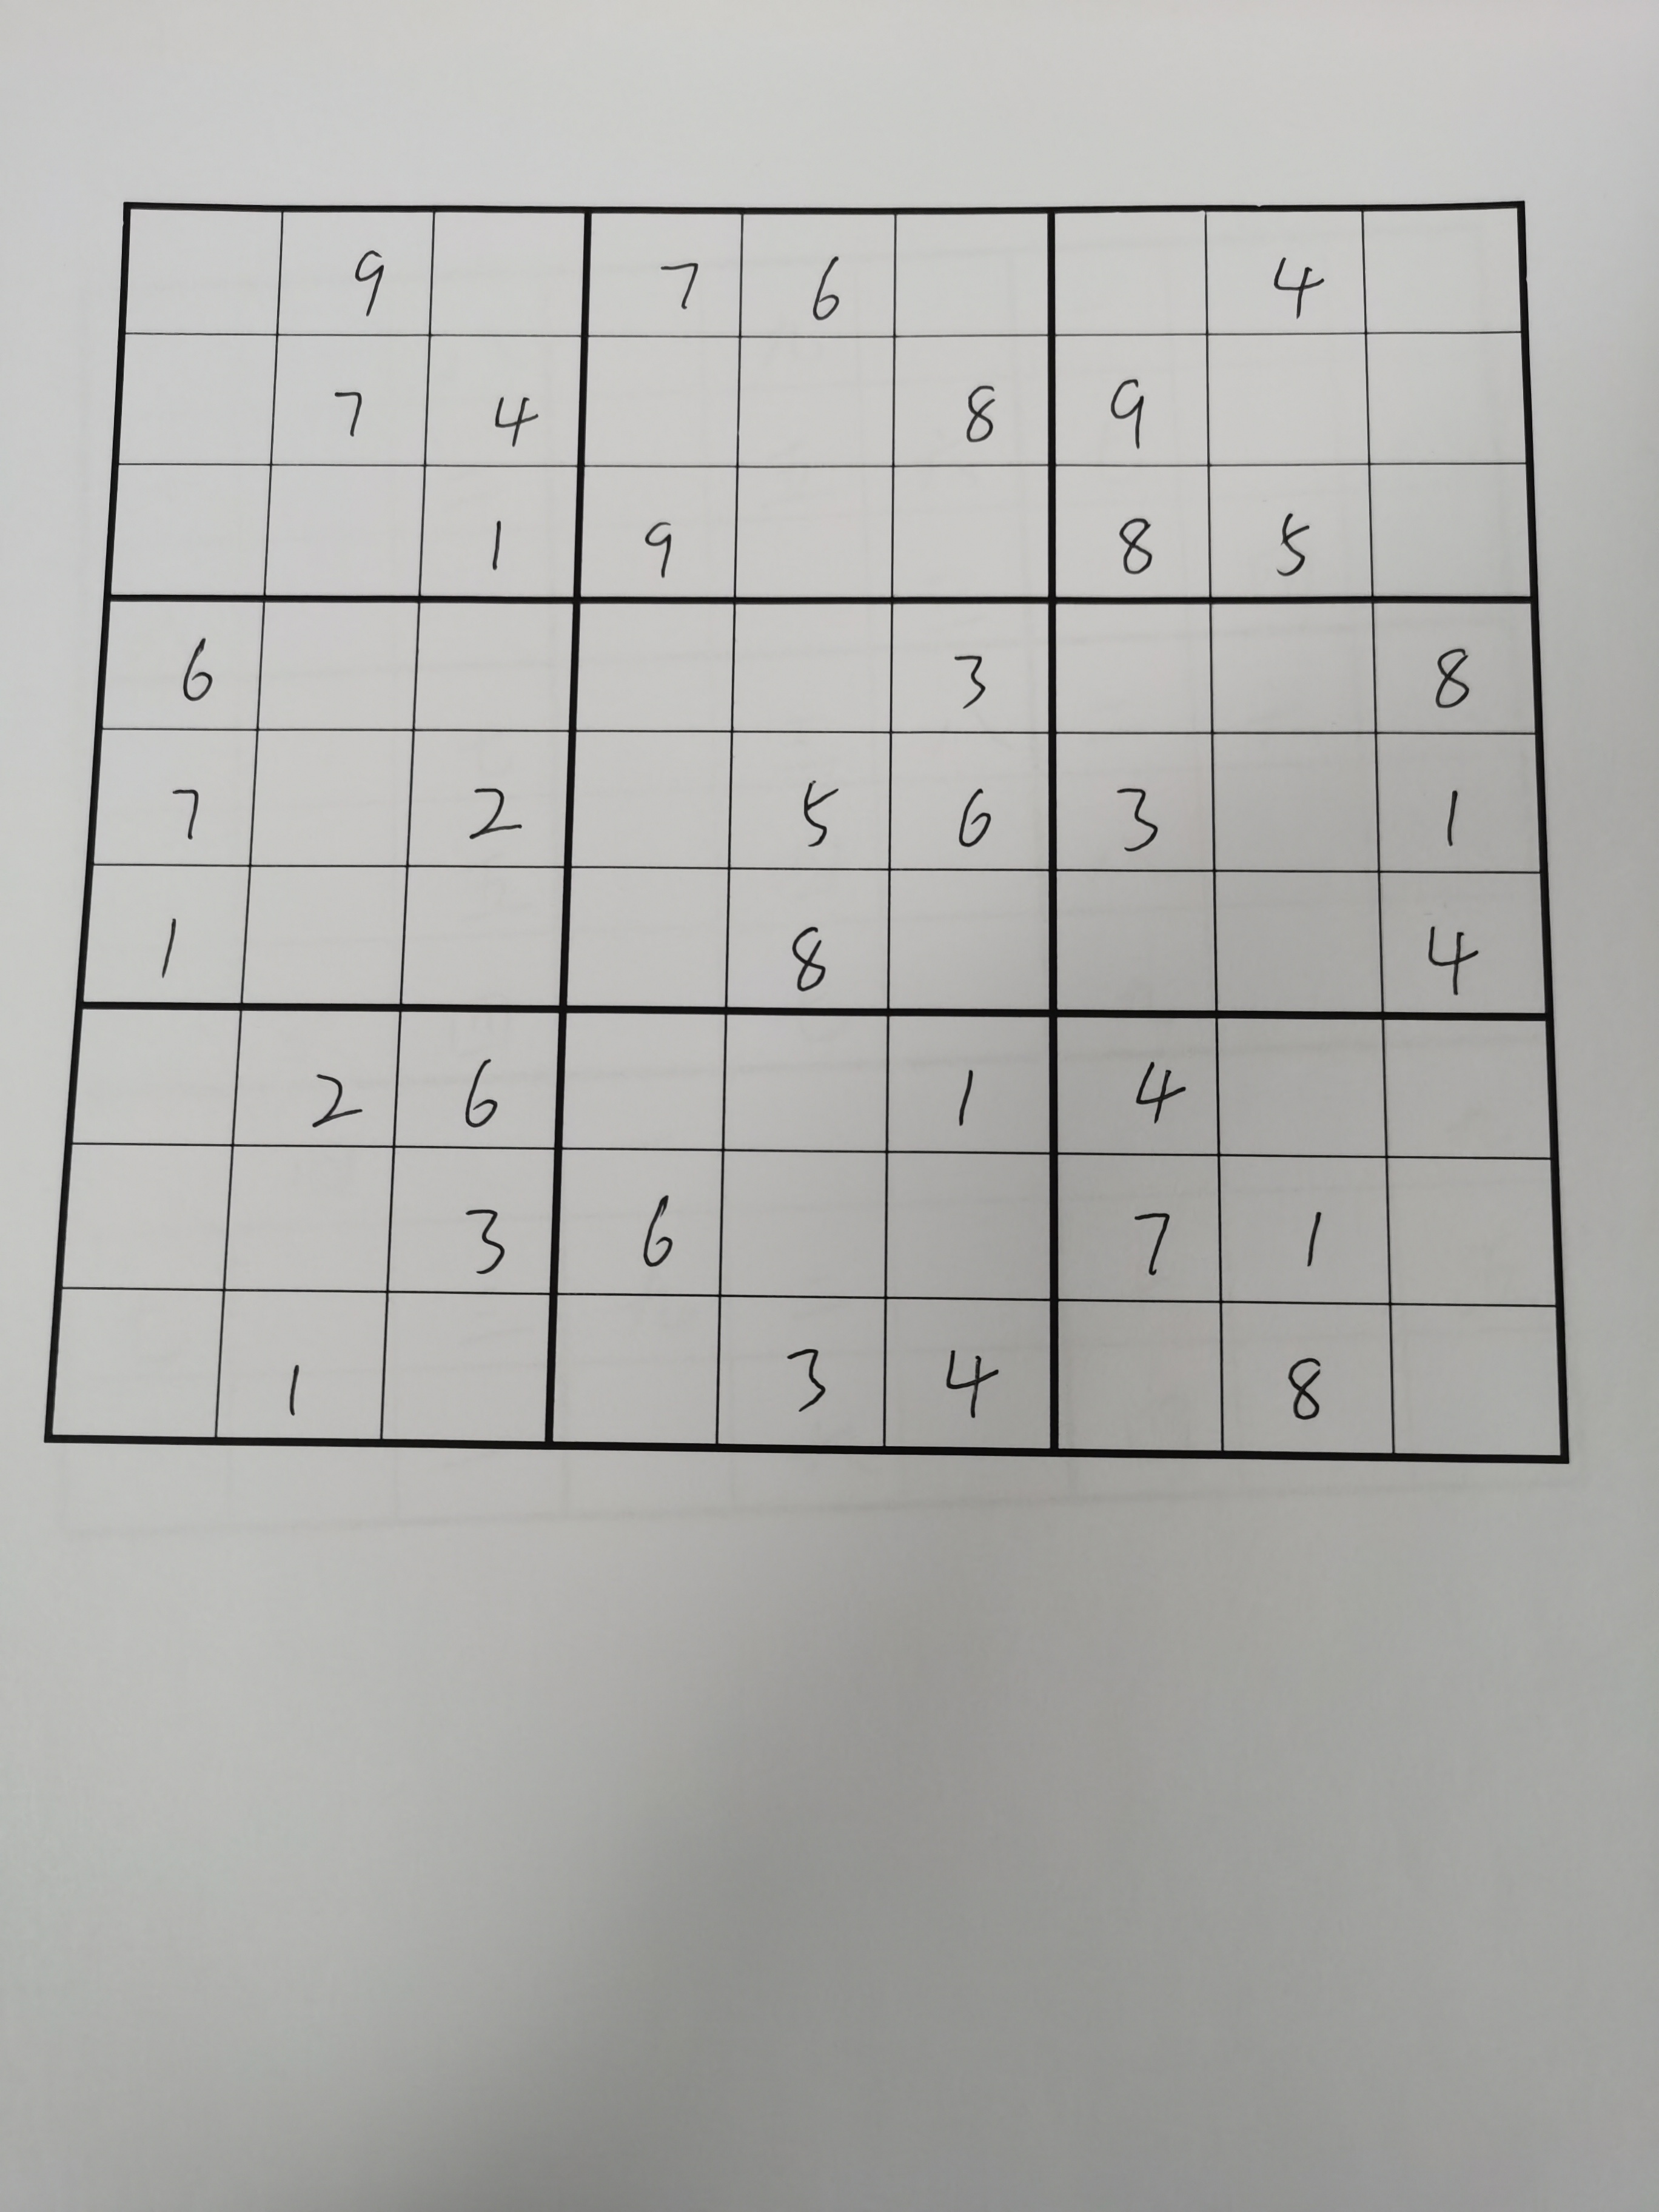 9 7 6 4
7 4 8 9
1 9 8 5
6 3 8
7 2 5 6 3 1
1 8 4
2 6 1 4
3 6 7 1
1 3 4 8